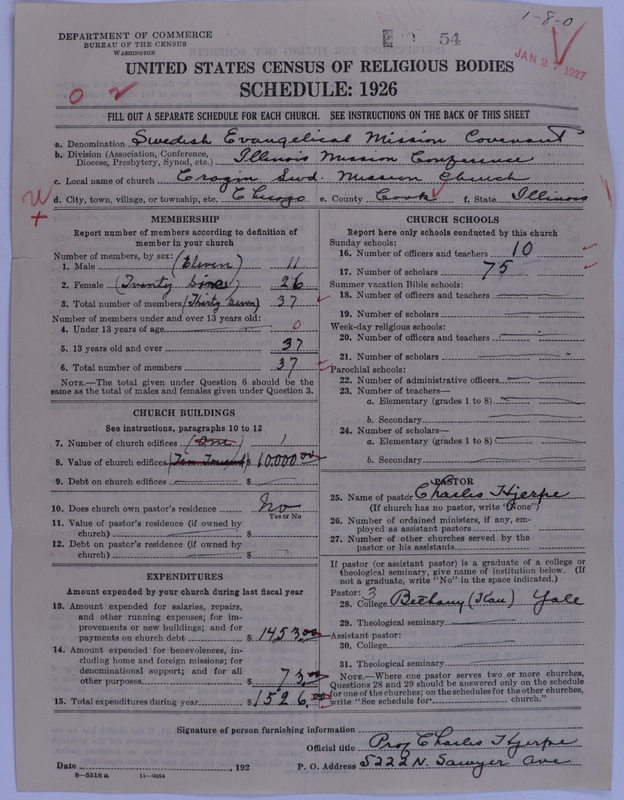 1-8-0
DEPARTMENT OF COMMERCE
BUREAU OF THE CENSUS
WASHINGTON
54
JAN 2 1927
UNITED STATES CENSUS OF RELIGIOUS BODIES
SCHEDULE: 1926
0 2
FILL OUT A SEPARATE SCHEDULE FOR EACH CHURCH. SEE INSTRUCTIONS ON THE BACK OF THIS SHEET
a. Denomination Swedish Evangelical Mission Covenant
b. Division (Association, Conference, Diocese, Presbytery, Synod, etc.) Illinois Mission Conference
c. Local name of church Cragin Swd. Mission Church
d. City, town, village, or township, etc. Chicago e. County Cook f. State Illinois
MEMBERSHIP
Report number of members according to definition of
member in your church
Number of members, by sex:
1. Male (Eleven) 11
2. Female (Twenty Six) 26
3. Total number of members (Thirty Seven) 37
Number of members under and over 13 years old:
4. Under 13 years of age 0
5. 13 years old and over 37
6. Total number of members 37
NOTE.—The total given under Question 6 should be the
same as the total of males and females given under Question 3.
CHURCH BUILDINGS
See instructions, paragraphs 10 to 12
7. Number of church edifices (One) 1
8. Value of church edifices (Ten Tousend) $ 10,000.00
9. Debt on church edifices $
10. Does church own pastor's residence No
Yes or No
11. Value of pastor's residence (if owned by
church) $
12. Debt on pastor's residence (if owned by
church) $
EXPENDITURES
Amount expended by your church during last fiscal year
13. Amount expended for salaries, repairs,
and other running expenses; for im-
provements or new buildings; and for
payments on church debt $ 1453.00
14. Amount expended for benevolences, in-
cluding home and foreign missions; for
denominational support; and for all
other purposes $ 73.00
15. Total expenditures during year $ 1526.00
CHURCH SCHOOLS
Report here only schools conducted by this church
Sunday schools:
16. Number of officers and teachers 10
17. Number of scholars 75
Summer vacation Bible schools:
18. Number of officers and teachers
19. Number of scholars
Week-day religious schools:
20. Number of officers and teachers
21. Number of scholars
Parochial schools:
22. Number of administrative officers
23. Number of teachers—
a. Elementary (grades 1 to 8)
b. Secondary
24. Number of scholars—
a. Elementary (grades 1 to 8)
b. Secondary
PASTOR
25. Name of pastor Charles Hjerpe
(If church has no pastor, write "None")
26. Number of ordained ministers, if any, em-
ployed as assistant pastors
27. Number of other churches served by the
pastor or his assistants
If pastor (or assistant pastor) is a graduate of a college or
theological seminary, give name of institution below. (If
not a graduate, write "No" in the space indicated.)
Pastor: 3
28. College Bethany (Kan) Yale
29. Theological seminary
Assistant pastor:
30. College
31. Theological seminary
NOTE.—Where one pastor serves two or more churches,
Questions 28 and 29 should be answered only on the schedule
for one of the churches; on the schedules for the other churches,
write "See schedule for church."
Signature of person furnishing information
Official title Prof Charles Hjerpe
Date , 192 P. O. Address 5222 N. Sawyer Ave
8—5518 a 11—9654